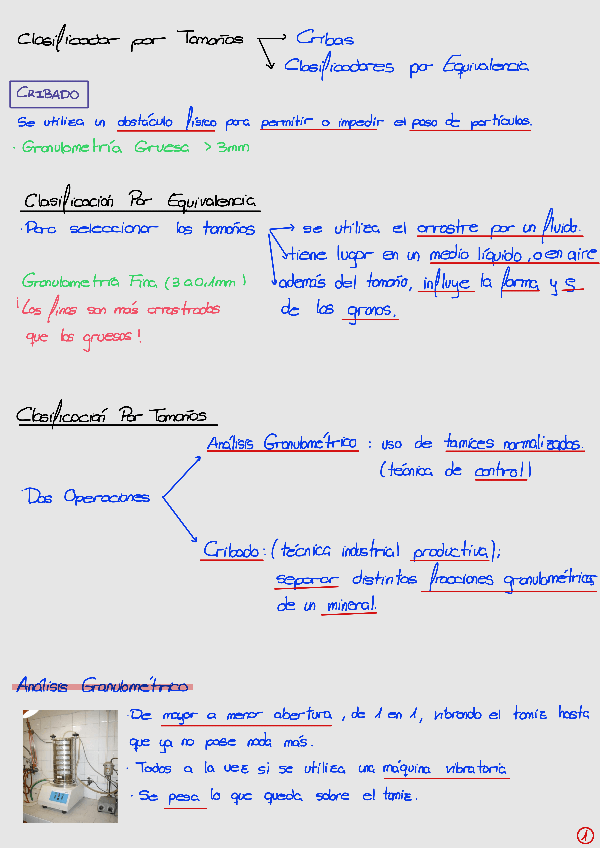 Clasificador por Tamaños → Cribas
↘ Clasificadores por Equivalencia
CRIBADO
Se utiliza un obstáculo físico para permitir o impedir el paso de partículas.
· Granulometría Gruesa > 3mm
Clasificación Por Equivalencia
· Para seleccionar los tamaños → se utiliza el arrastre por un fluido.
tiene lugar en un medio líquido, o en aire
Granulometría Fina (3 a 0,1mm)
además del tamaño, influye la forma y S
¡Los finos son más arrastrados
de los granos.
que los gruesos!
Clasificación Por Tamaños
Análisis Granulométrico : uso de tamices normalizados.
(técnica de control)
Dos Operaciones
Cribado: (técnica industrial productiva);
separar distintas fracciones granulométricas
de un mineral.
Análisis Granulométrico
· De mayor a menor abertura, de 1 en 1, vibrando el tamiz hasta
que ya no pase nada más.
· Todos a la vez si se utiliza una máquina vibratoria
· Se pesa lo que queda sobre el tamiz.
1